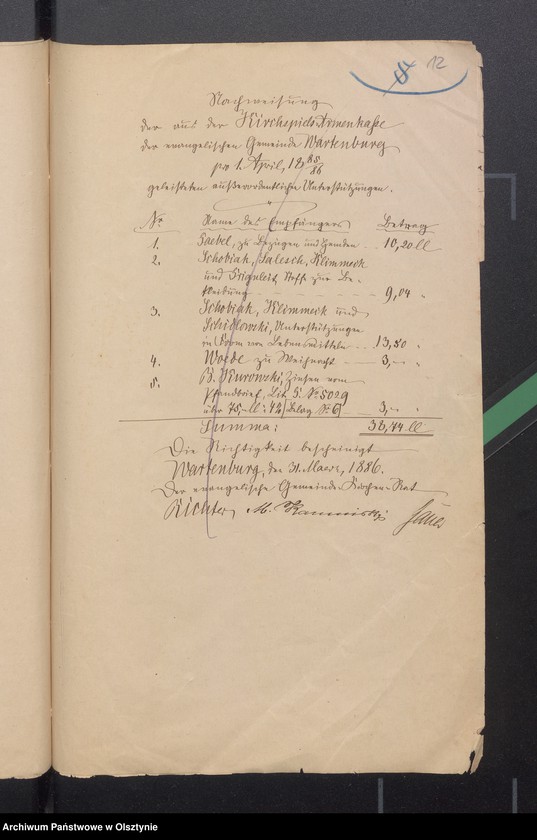 12
Nachweisung
der aus der Kirchspiels-Armenkasse
der evangelischen Gemeinde Wartenburg
pro 1. April, 18 85/86
geleisteten außerordentlichen Unterstützungen.
No. Name des Empfängers Betrag
1. zu Bezügen und Hemden 10,20 M
2. Schobiak, Salesch, Klimmeck
und Stoffe zur Be-
kleidung 9,04 "
3. Schobiak, Klimmeck und
Schidlowski, Unterstützungen
in Form von Lebensmitteln 13,50 "
4. Woede zu Weihnacht 3,— "
5. B. Kurowski, Zinsen vom
Pfandbrief, Lit. No. 5029
über 75 M 3,— "
Summa: 38,74 M
Die Richtigkeit bescheinigt
Wartenburg, den 31. Maerz, 1886.
Der evangelische Gemeinde-Kirchen-Rat
Richter, M. Kaminski
Archiwum Państwowe w Olsztynie